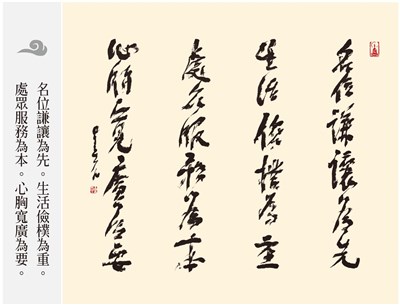 名位謙讓為先
生活儉樸為重
處眾服務為本
心胸寬廣為要
名位謙讓為先。生活儉樸為重。
處眾服務為本。心胸寬廣為要。